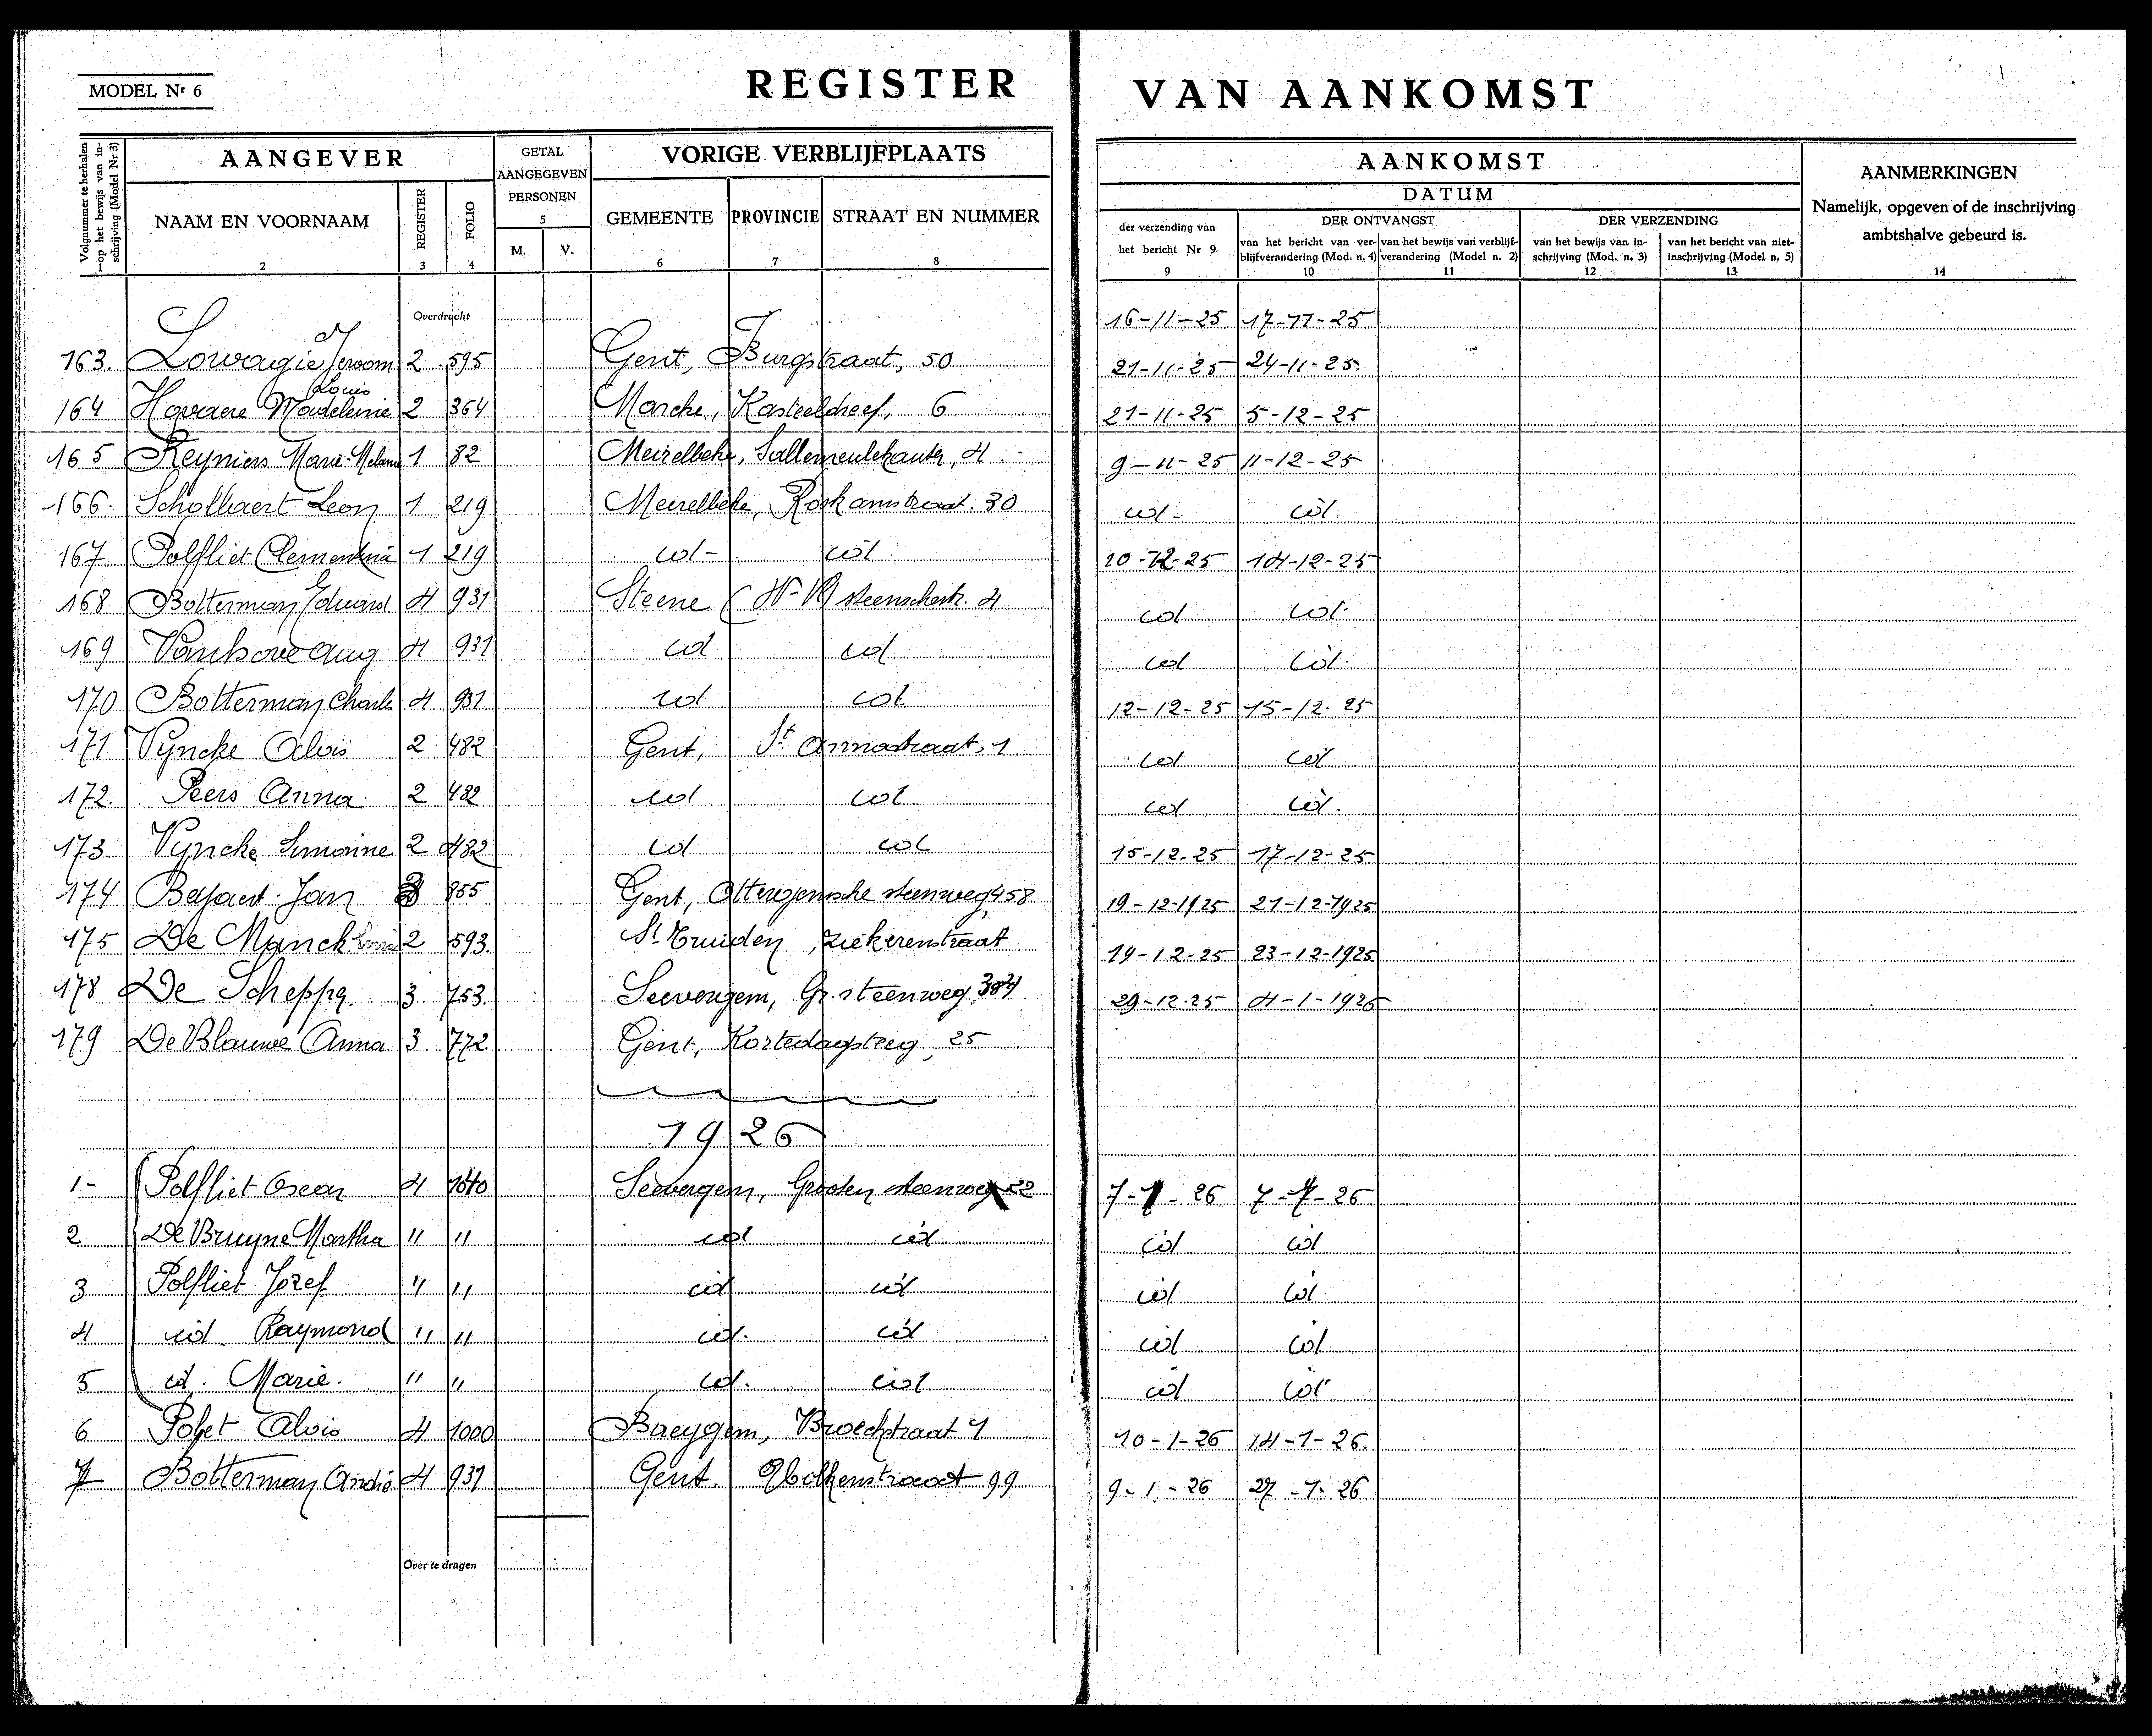 MODEL Nr 6
REGISTER VAN AANKOMST
Volgnummer te herhalen op het bewijs van inschrijving (Model Nr 3)
1
AANGEVER
NAAM EN VOORNAAM
2
REGISTER
3
FOLIO
4
GETAL AANGEGEVEN PERSONEN
5
M. V.
VORIGE VERBLIJFPLAATS
GEMEENTE
6
PROVINCIE
7
STRAAT EN NUMMER
8
AANKOMST
DATUM
der verzending van het bericht Nr 9
9
DER ONTVANGST
van het bericht van verblijfverandering (Mod. n. 4)
10
van het bewijs van verblijfverandering (Model n. 2)
11
DER VERZENDING
van het bewijs van inschrijving (Mod. n. 3)
12
van het bericht van niet-inschrijving (Model n. 5)
13
AANMERKINGEN
Namelijk, opgeven of de inschrijving ambtshalve gebeurd is.
14
Overdracht 16-11-25 17-11-25
163. Lowagie Jeroom 2 595 Gent, Burgstraat, 50 21-11-25 24-11-25
Louis
164 Havaere Madeleine 2 364 Marcke, Kasteeldreef, 6 21-11-25 5-12-25
165 Reyniers Marie-Melanie 1 82 Meirelbeke, 4 9-11-25 11-12-25
166. Schollaert Leon 1 219 Meirelbeke, Roskamstraat. 30 id. id.
167 Polfliet Clementina 1 219 id - id 10-12-25 14-12-25
168 Botterman Eduard 4 931 Steene 4 id id.
169 Vanhove Aug 4 931 id id id id.
170 Botterman Charle 4 931 id id 12-12-25 15-12-25
171 Vyncke Aloïs 2 482 Gent, St Annastraat, 1 id id
172. Peers Anna 2 482 id id id id.
173 Vyncke Simonne 2 482 id id 15-12-25 17-12-25
174 Beyaert Jan 3 855 Gent, Otterg. steenweg 458 19-12-1925 21-12-1925
175 De Mynck 2 593 St Truiden, ziekerenstraat 19-12-25 23-12-1925
178 De Schepper 3 753 Seevergem, Gr. steenweg 29-12-25 4-1-1926
179 De Blauwe Anna 3 772 Gent, Kortedagsteeg, 25
1926
1- Polfliet Oscar 4 1040 Seevergem, Grooten steenweg 22 7-1-26 7-1-26
2 De Bruyne Martha " " id id id id
3 Polfliet Jozef " " id id id id
4 id. Raymond " " id. id id id
5 id. Marie. " " id. id id id
6 Pofet Alois 4 1000 Baeygem, Broeckstraat 1 10-1-26 14-1-26.
7 Botterman André 4 931 Gent. 99 9-1-26 27-1-26
Over te dragen